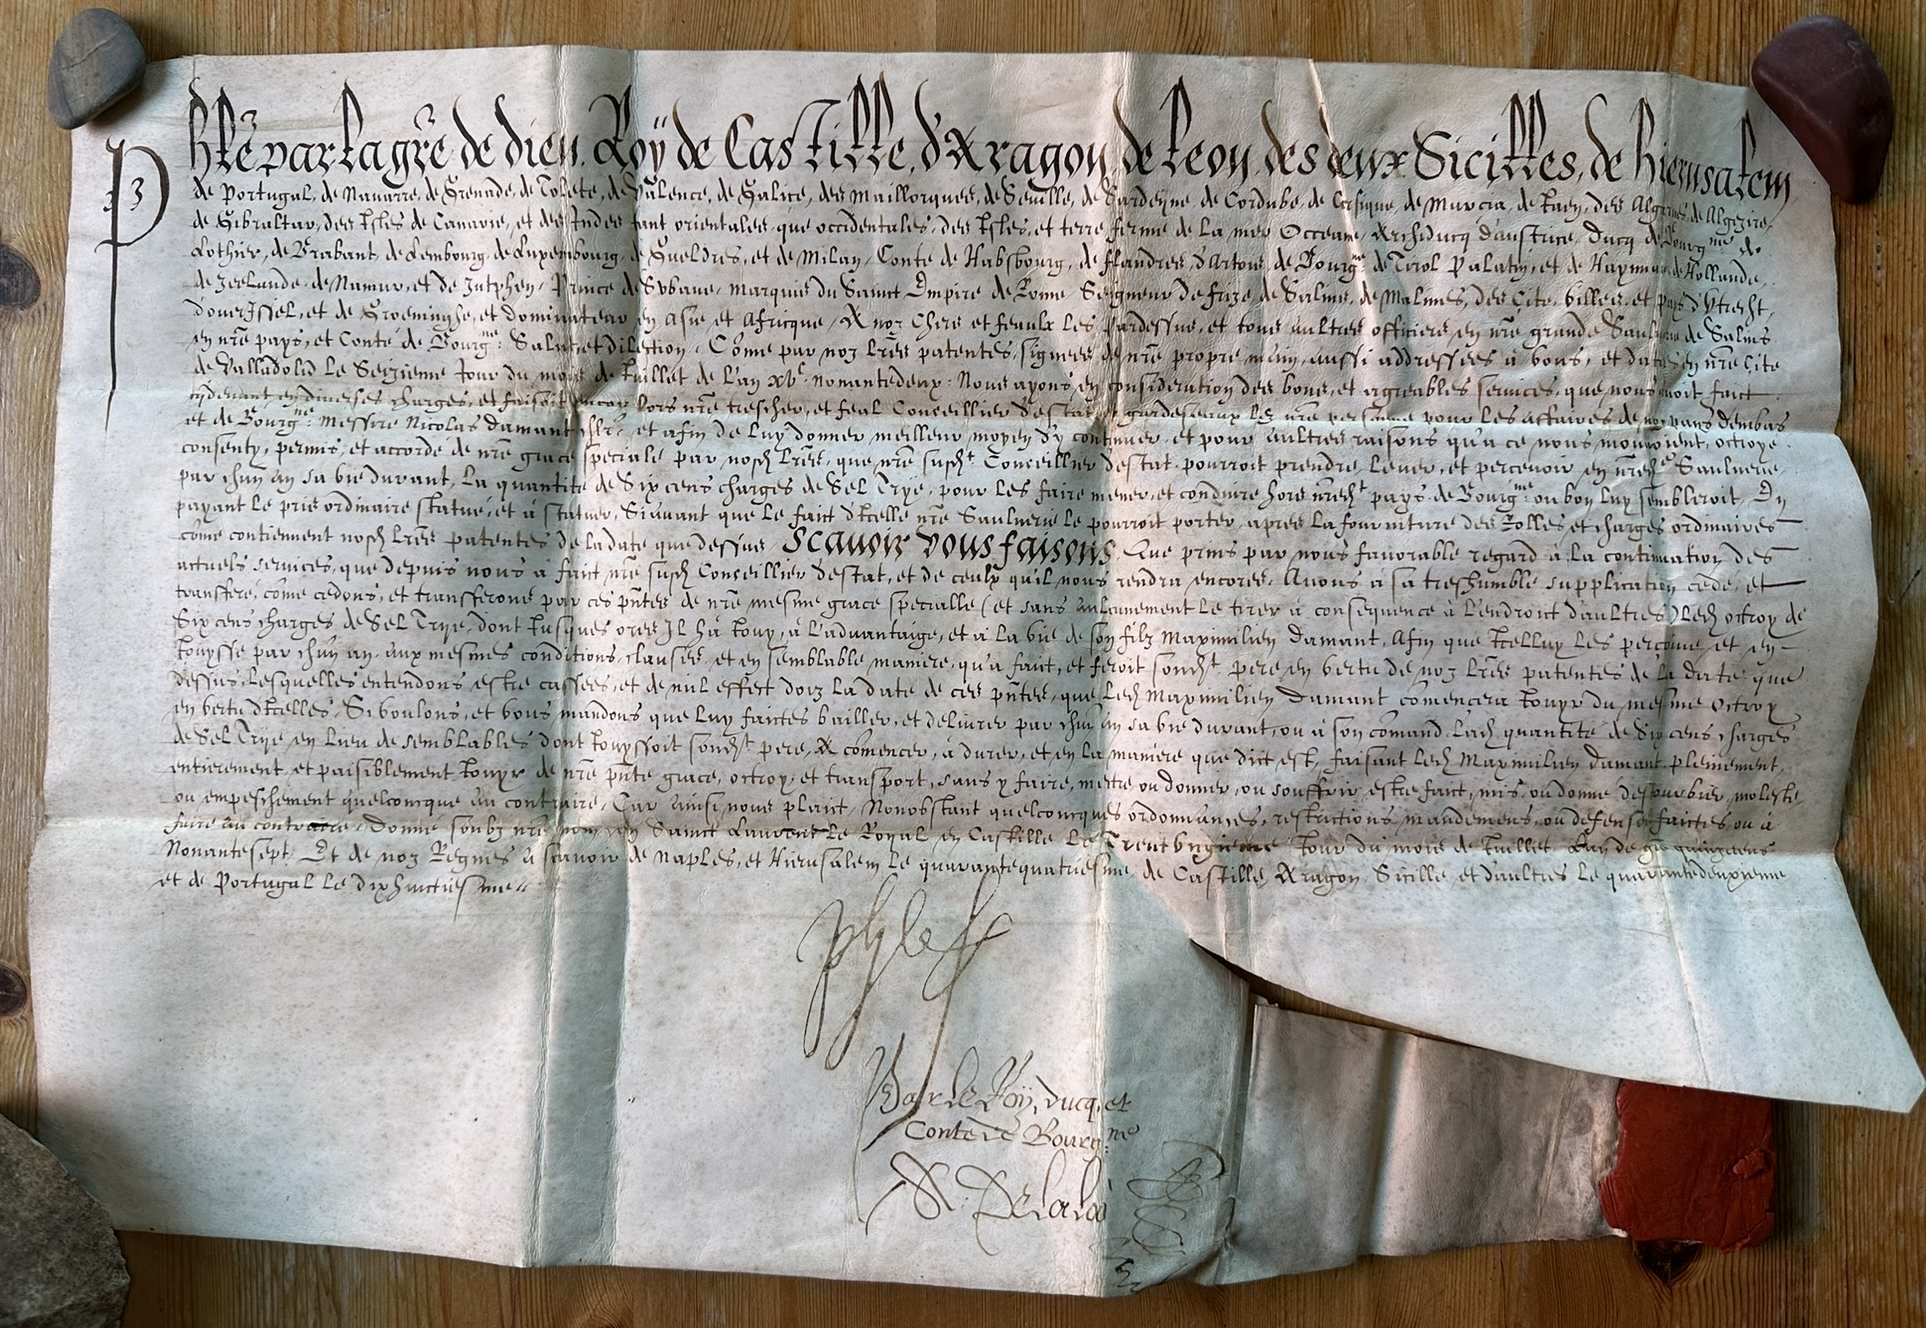 Phle par la grce de dieu, Roÿ de Castille, d'Arragon, de Leon, des deux Sicilles, de Hierusalem
de Portugal, de Navarre, de Grenade, de Tolete, de Valence, de Galice, des Maillorques, de Seville, de Sardeyne, de Cordube, de Corsique, de Murcia, de Jaen, des Algarbes, de Algezire,
de Gibraltar, des Isles de Canarie, et des Indes tant orientales, que occidentales, des Isles, et terre ferme de la mer Occeane, Archiducq d'austrice, Ducq de Bourgne de
Lothier, de Brabant, de Lembourg, de Luxembourg, de Gueldres, et de Milan, Conte de Habsbourg, de Flandres, d'Artois, de Bourgne de Tirol, Palatin, et de Haynnau, de Hollande,
de Zeelande, de Namur, et de Zutphen, Prince de Svbave, Marquis du Sainct Empire de Rome Seigneur de Frize, de Salins, de Malines, des Cité, Villes, et pays d'Vtrecht,
d'overIssel, et de Groeninghe, et dominateur en Asie et Africque, A noz Chers et feaulx les Pardessus, et tous aultres officiers en nre grande Saulnerie de Salins
en nre pays, et Conté de Bourgne: Salut, et dilection, Côme par noz lres patentes, signees de nre propre main, aussi addressées à vous, et datées en nre Cité
de Valladolid le Seizieme Jour du mois de Juillet de l'an xvc nonantedeux: Nous ayons, en consideration des bons, et agreables services, que nous avoit faict
cydevant en diverses charges, et faisoit encor lors nre treschier, et feal Conceillier d'estat et gardeseaulx lez nre personne pour les affaires de noz pays d'embas
et de Bourgne: Messire Nicolas Damant chlr: et afin de luy donner meilleur moyen d'y continuer, et pour aultres raisons qu'à ce nous mouvoient, octroyé
consenty, permis, et accordé de nre grace speciale par nosd lres, que nre susdt Conceillier d'estat pourroit prendre, lever, et percevoir en nred Saulnerie
par chun an sa vie durant, la quantité de Six cens charges de Sel Trye, pour les faire mener, et conduire hors nredt pays de Bourgne: ou bon luy sembleroit, En
payant le pris ordinaire statué, et à statuer, Suivant que le faict d'Icelle nre Saulnerie le pourroit porter, apres la fourniture des Rolles, et charges ordinaires
côme contiennent nosd lres patentes de la date que dessus Scavoir vous faisons Que prins par nous favorable regard à la continuation des
actuels services, que depuis nous à faict nre susd Conceillier d'estat, et de ceulx qu'il nous rendra encores, Avons à sa treshumble supplication cedé, et
transferé, côme cedons, et transferons par ces pntes de nre mesme grace specialle (et sans aulcunement le tirer à consequence à l'endroict d'aultres) led octroy de
Six cens charges de Sel Trye, dont Jusques ores Il hà Jouy, à l'advantaige, et à la vie de son filz Maximilien Damant, Afin que Icelluy les perçoive, et en
Jouysse par chun an, aux mesmes conditions, clauses, et en semblable maniere, qu'à faict, et feroit sondt pere, en vertu de noz lres patentes de la date que
dessus, lesquelles entendons estre cassées, et de nul effect doiz la date de ces pntes, que led Maximilien Damant cômencera Jouyr du mesme octroy
en vertu d'Icelles, Si voulons, et vous mandons que luy faictes bailler, et delivrer par chun an sa vie durant, ou à son cômand lad quantité de Six cens charges
de Sel Trye en lieu de semblables dont Jouyssoit sondt pere, A cômencer, à durer, et en la maniere que dict est, faisant led Maximilien Damant plainement,
entierement, et paisiblement Jouyr de nre pnte grace, octroy, et transport, sans y faire, mettre ou donner, ou souffrir estre faict, mis, ou donné destourbier, moleste,
ou empeschement quelconque au contraire, Car ainsi nous plaict, Nonobstant quelconques ordonnances, restrictions, mandemens, ou defenses faictes, ou à
faire au contraire, Donné soubz nre nom en Sainct Laurent le Royal en Castille le Trentungieme Jour du mois de Juillet L'an de grce quinzecens
Nonantesept, Et de noz Regnes à scavoir de Naples, et Hierusalem le quarantequatriesme, de Castille, Arragon, Sicille et d'aultres le quarantedeuxieme
et de Portugal le dixhuictiesme
Phle
Par le Roÿ, ducq, et
Conte de Bourgne